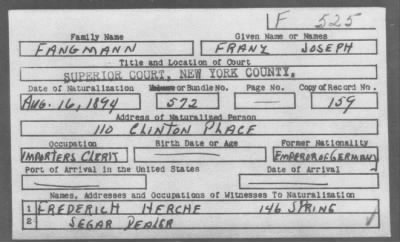 F 525
Family Name Given Name or Names
FANGMANN FRANZ JOSEPH
Title and Location of Court
SUPERIOR COURT, NEW YORK COUNTY.
Date of Naturalization Volume or Bundle No. Page No. Copy of Record No.
AUG. 16, 1894 572 — 159
Address of Naturalized Person
110 CLINTON PLACE
Occupation Birth Date or Age Former Nationality
IMPORTERS CLERK — EMPEROR OF GERMANY
Port of Arrival in the United States Date of Arrival
— —
Names, Addresses and Occupations of Witnesses To Naturalization
1 FREDERICH HERCHE 146 SPRING
2 SEGAR DEALER